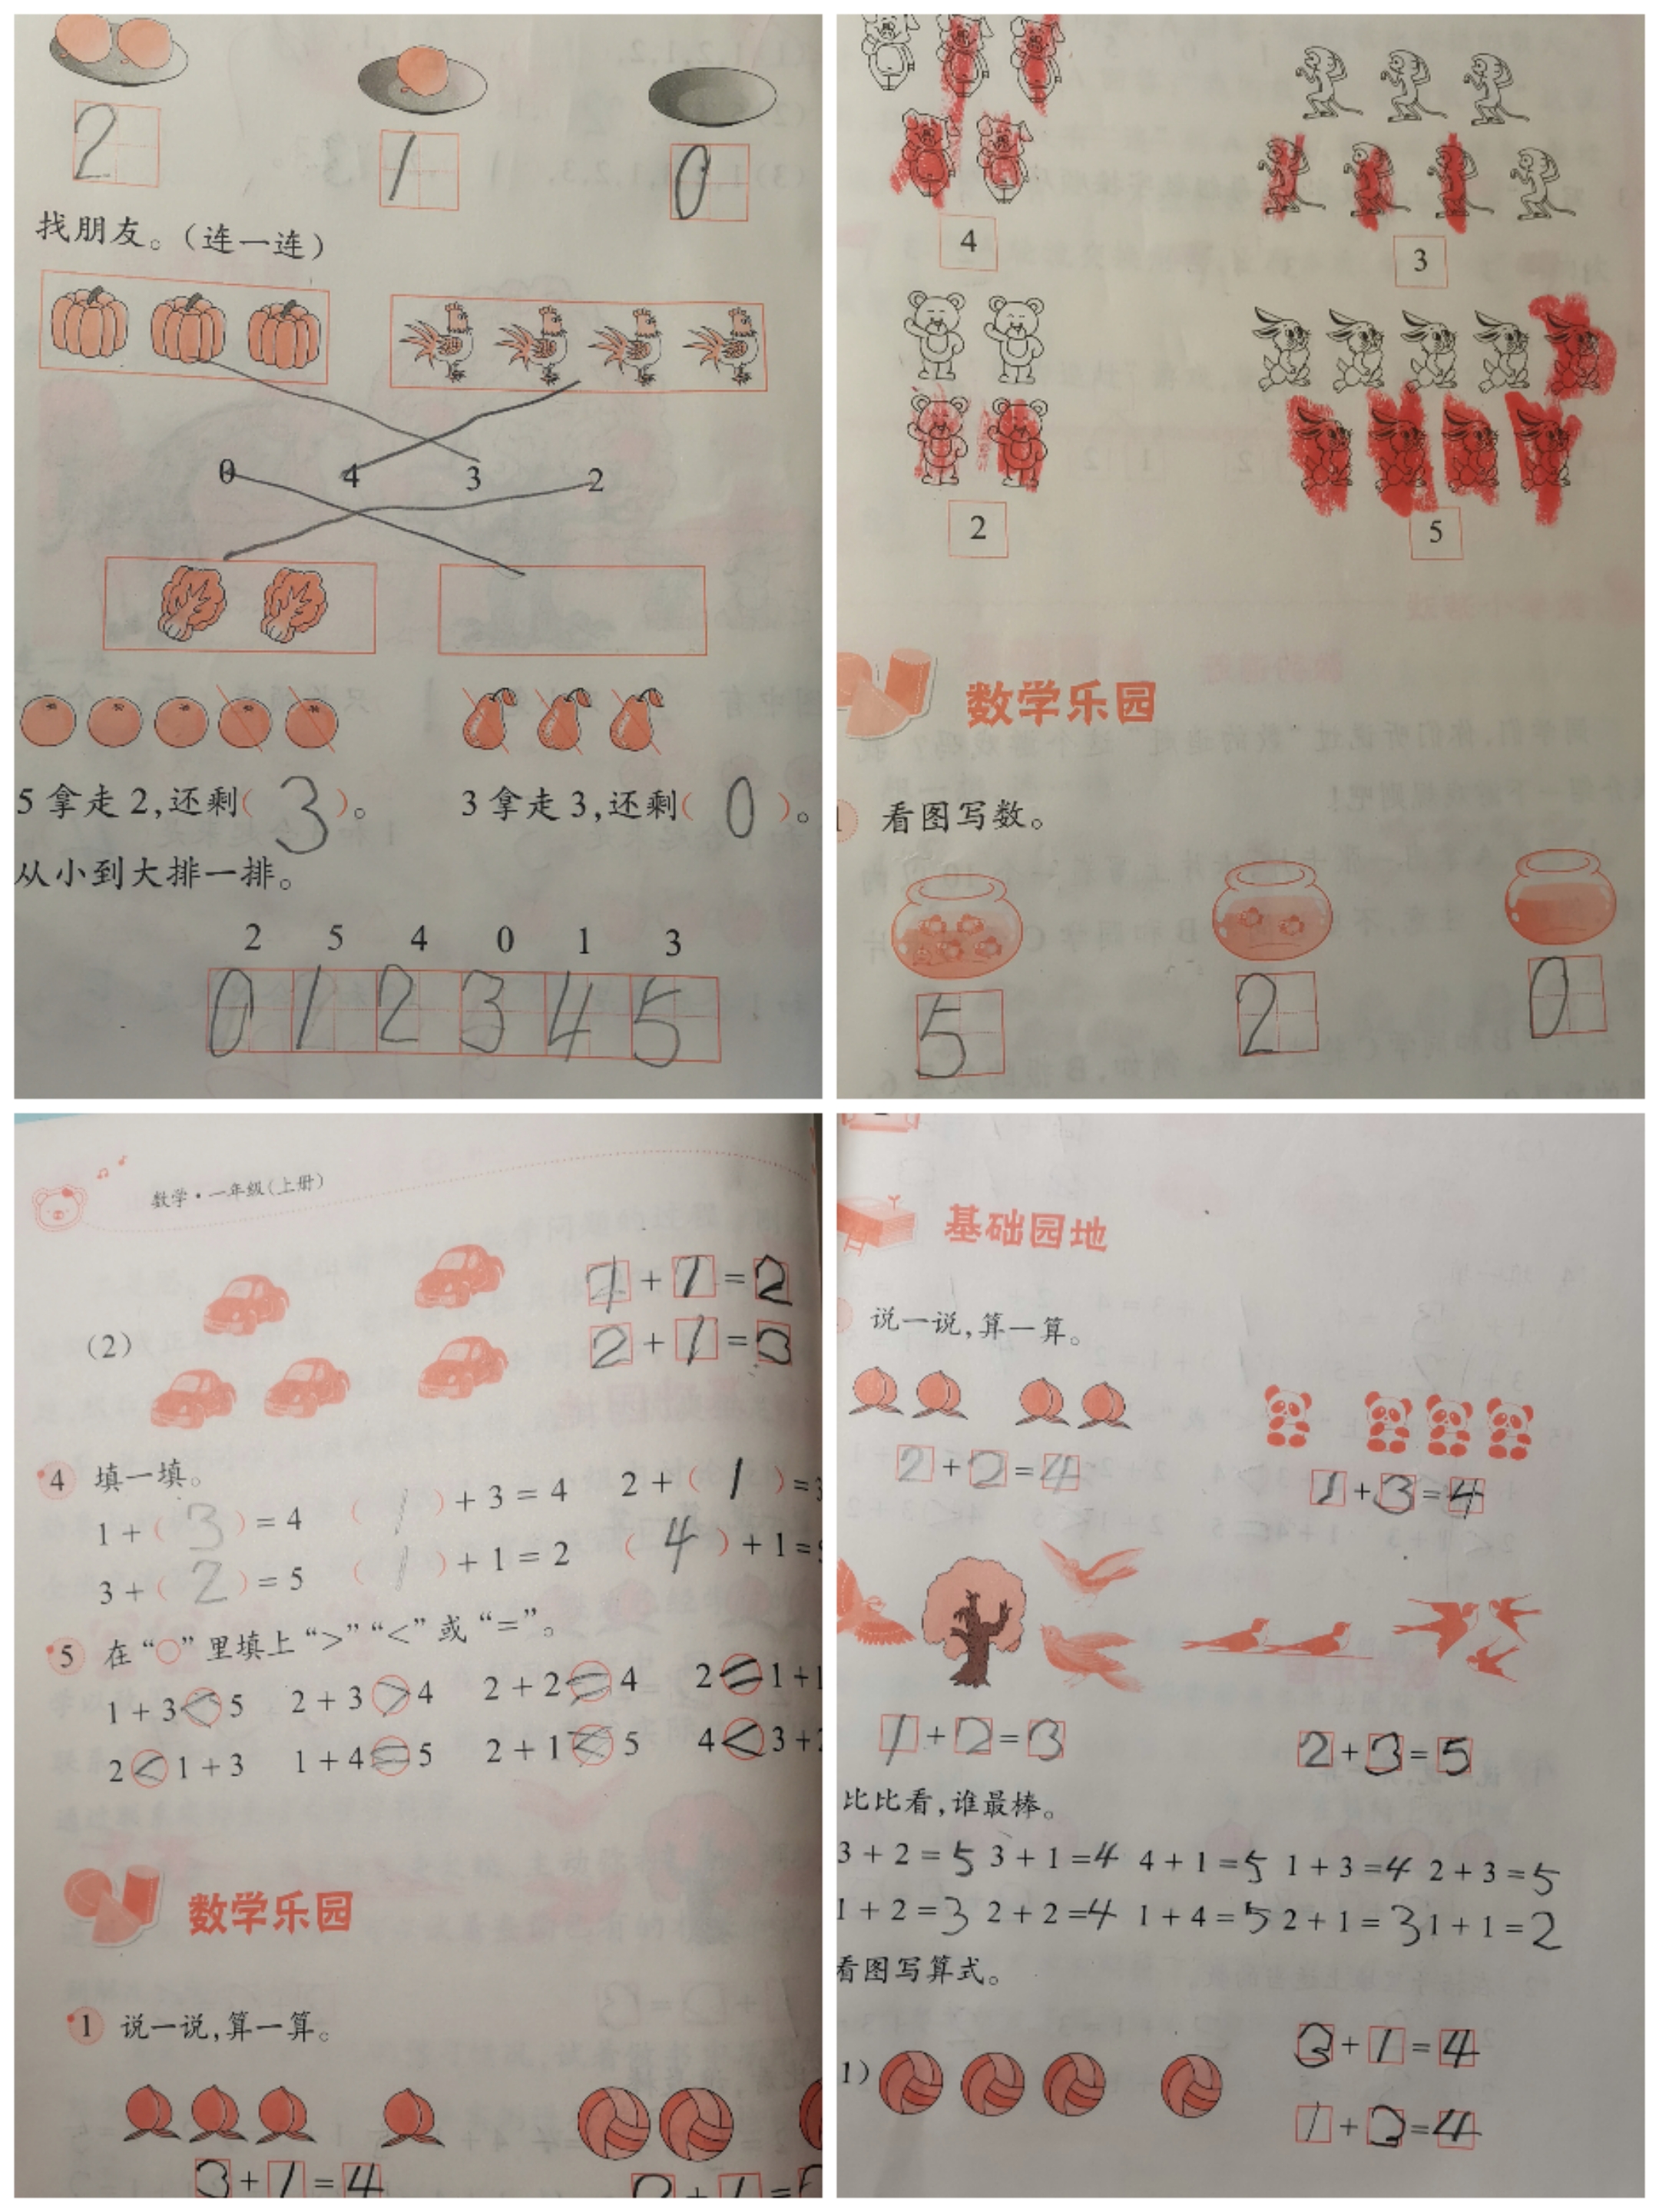 2 1 0
找朋友。(连一连)
0 4 3 2
5拿走2,还剩( 3 )。 3拿走3,还剩( 0 )。
从小到大排一排。
2 5 4 0 1 3
0 1 2 3 4 5
4 3
2 5
数学乐园
看图写数。
5 2 0
数学·一年级(上册)
(2)
1+1=2
2+1=3
4 填一填。
1+( 3 )=4 ( 1 )+3=4 2+( 1 )=3
3+( 2 )=5 ( 1 )+1=2 ( 4 )+1=
5 在“○”里填上“>”“<”或“=”。
1+3<5 2+3>4 2+2=4 2=1+1
2<1+3 1+4=5 2+1<5 4<3+2
数学乐园
1 说一说,算一算。
3+1=4
基础园地
说一说,算一算。
2+2=4 1+3=4
1+2=3 2+3=5
比比看,谁最棒。
3+2=5 3+1=4 4+1=5 1+3=4 2+3=5
1+2=3 2+2=4 1+4=5 2+1=3 1+1=2
看图写算式。
1)
3+1=4
1+3=4